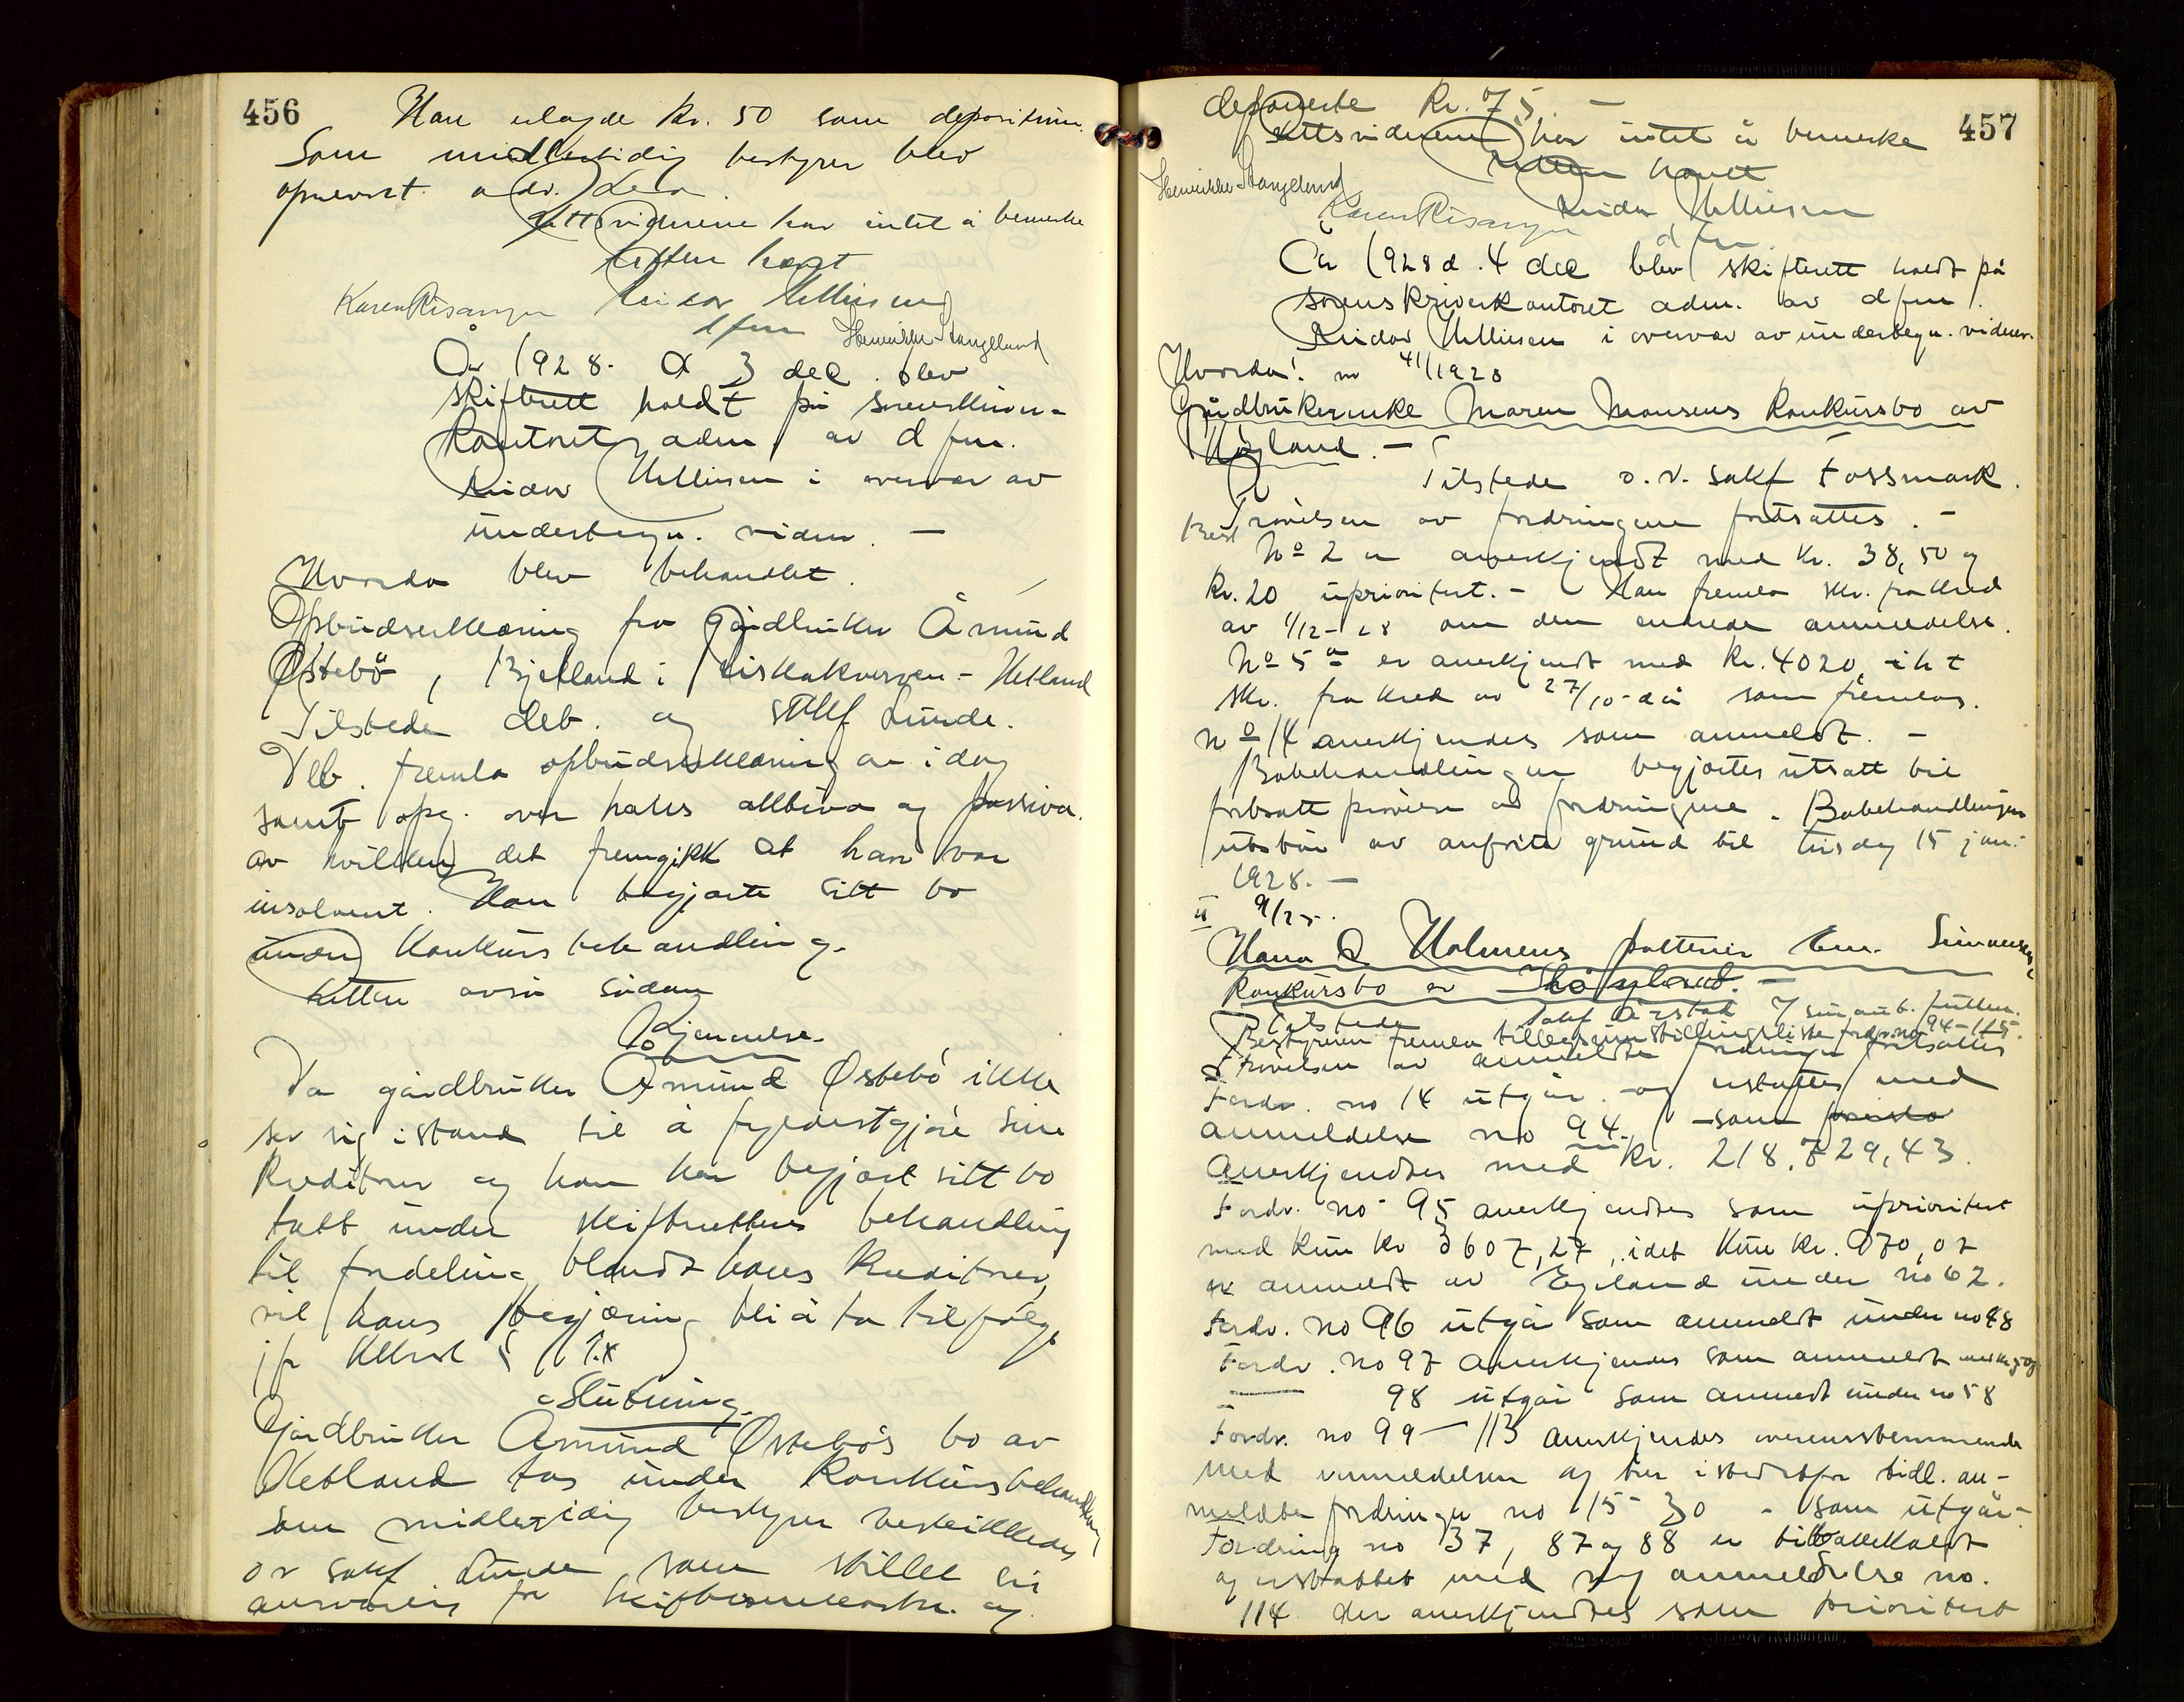 456
Han erlagde kr. 50 som depositum.
Som midlertidig bestyrer blev
opnevnt adv.
Rettsvidnene har intet å bemerke
Retten hævet
Karen Risanger Reidar Mellissen
d fm Henrikke Stangeland
År 1928. d 3 dec. blev
skifterett holdt på sorenskriver-
kontoret adm av d fm.
Reidar Mellissen i overvær av
undertegn. vidner. —
Hvorda blev behandlet.
Opbudserklæring fra gårdbruker Åmund
Østebø, Bjelland i Riskakverven - Hetland
Tilstede deb. og sakf Lunde.
Deb. fremla opbudserklæring av idag
samt opg. over hans aktiva og passiva.
av hvilken det fremgikk at han var
insolvent. Han begjærte sitt bo
under konkursbehandling.
Retten avsa sådan
Kjennelse.
Da gårdbruker Åmund Østebø ikke
ser sig istand til å fyldestgjøre sine
kreditorer og han har begjært sitt bo
tatt under skifterettens behandling
til fordeling blandt hans kreditorer,
vil hans begjæring bli å ta tilfølge
jfr kkrsl § 1.
Slutning.
Gårdbruker Åmund Østebø's bo av
Hetland tas under konkursbehandling
Som midlertidig bestyrer beskikkedes
o r sakf Lunde som stillet sig
ansvarlig for skifteomkostn. og
457
deponerte kr. 75. —
Rettsvidnene har intet å bemerke
Retten hævet
Henrikke Stangeland
Karen Risanger Reidar Mellissen
d fm.
År 1928 d. 4 dec blev skifterett holdt på
sorenskriverkontoret adm. av d fm.
Reidar Mellissen i overvær av undertegn. vidner.
Hvorda: no 41/1928
Gårdbrukerenke Maren Monsens konkursbo av
Høiland. —
Tilstede o. r. sakf Fossmark.
Prøvelsen av fordringene fortsattes. —
Best No 2 er anerkjendt med kr. 38,50 og
kr. 20 uprioritert. - Han fremla skr. fra kred
av 1/12-28 om den endrede anmeldelse.
No 5a er anerkjendt med kr. 4020, iht
skr. fra kred av 27/10-då som fremlas.
No 14 anerkjendes som anmeldt. —
Bobehandlingen begjærtes utsatt til
fortsatt prøvelse av fordringene. Bobehandlingen
utstår av anførte grund til tirsdag 15 jan.
1928. —
II 9/25.
Hana & Holmens potteri Em. Simonsens
konkursbo av Høyland. —
Tilstede sakf Aarstad
Bestyreren fremla tilleggsinnstillingsliste fordr. no 94-115.
Prøvelsen av anmeldte fordringer fortsattes
Fordr. no 14 utgår og erstattes med
anmeldelse no 94. som
anerkjendtes med kr. 218,729,43.
Fordr. no 95 anerkjendtes som uprioritert
med kun kr 3607,27, idet kun kr. 970,07
er anmeldt av Egeland under no 62.
Fordr. no 96 utgår som anmeldt under no 48
Fordr. no 97 anerkjendes som anmeldt
— 98 utgår som anmeldt under no 58
Fordr. no 99 - 113 anerkjendes overensstemmende
med anmeldelsen og trer istedetfor tidl. an-
meldte fordringer no 15 - 30 - som utgår.
Fordring no 37, 87 og 88 er tilbakekaldt
og erstattet med ny anmeldelse no.
114 der anerkjendtes som prioritert